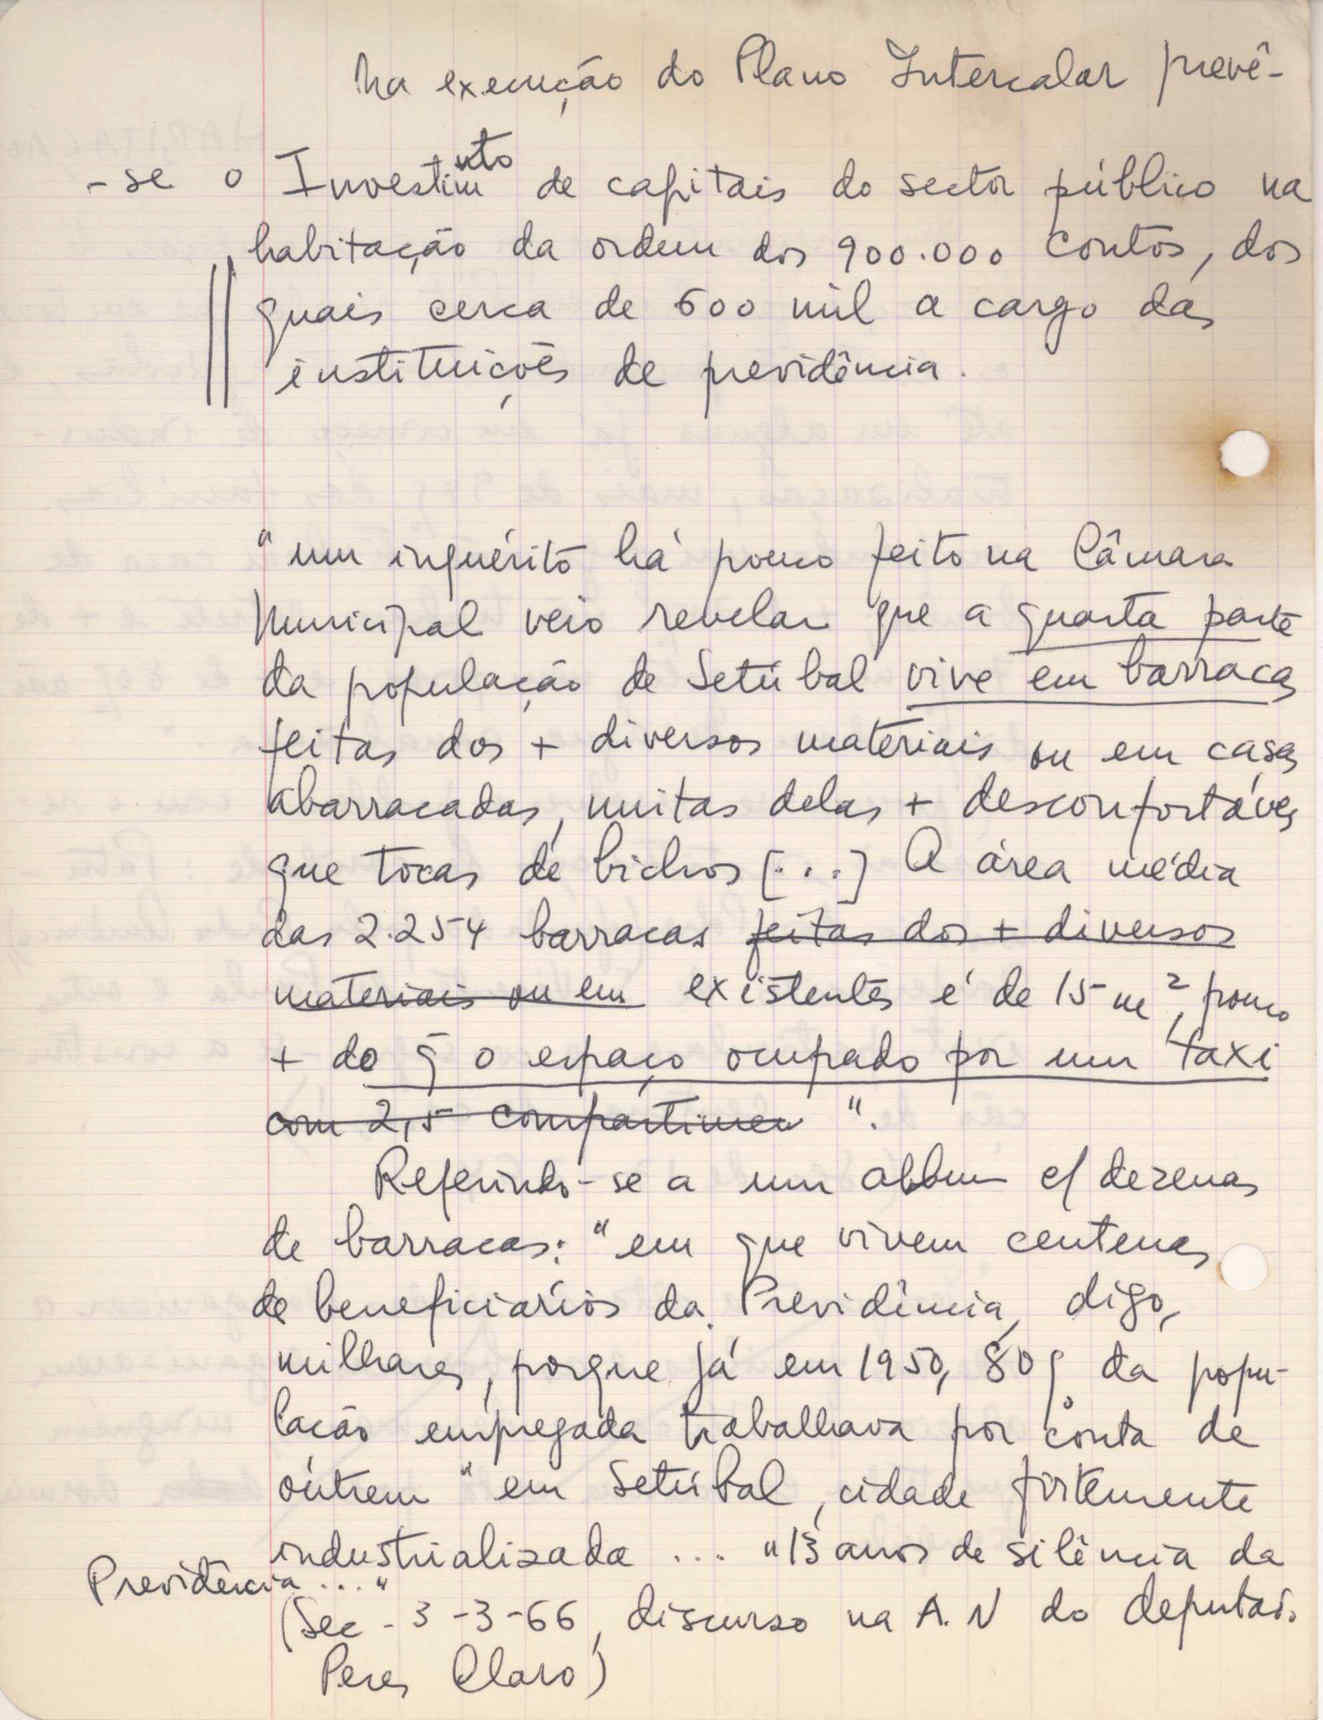 Na execução do Plano Intercalar prevê-
-se o Investimnto de capitais do sector público na
habitação da ordem dos 900.000 contos, dos
quais cerca de 600 mil a cargo das
instituições de previdência.
"um inquérito há pouco feito na Câmara
Municipal veio revelar que a quarta parte
da população de Setúbal vive em barracas
feitas dos + diversos materiais ou em casas
abarracadas, muitas delas + desconfortáveis
que tocas de bichos [...] A área média
das 2.254 barracas feitas dos + diversos
materiais ou em existentes é de 15 m², pouco
+ do q̃ o espaço ocupado por um taxi
com 2,5 compartimen ".
Referindo-se a um album c/ dezenas
de barracas: "em que vivem centenas
de beneficiários da Previdência, digo,
milhares, porque já em 1950, 80% da popu-
lação empregada trabalhava por conta de
outrem" em Setúbal, cidade fortemente
industrializada ... "13 anos de silência da
Previdência ..."
(Sec - 3-3-66, discurso na A.N do deputado
Peres Claro)